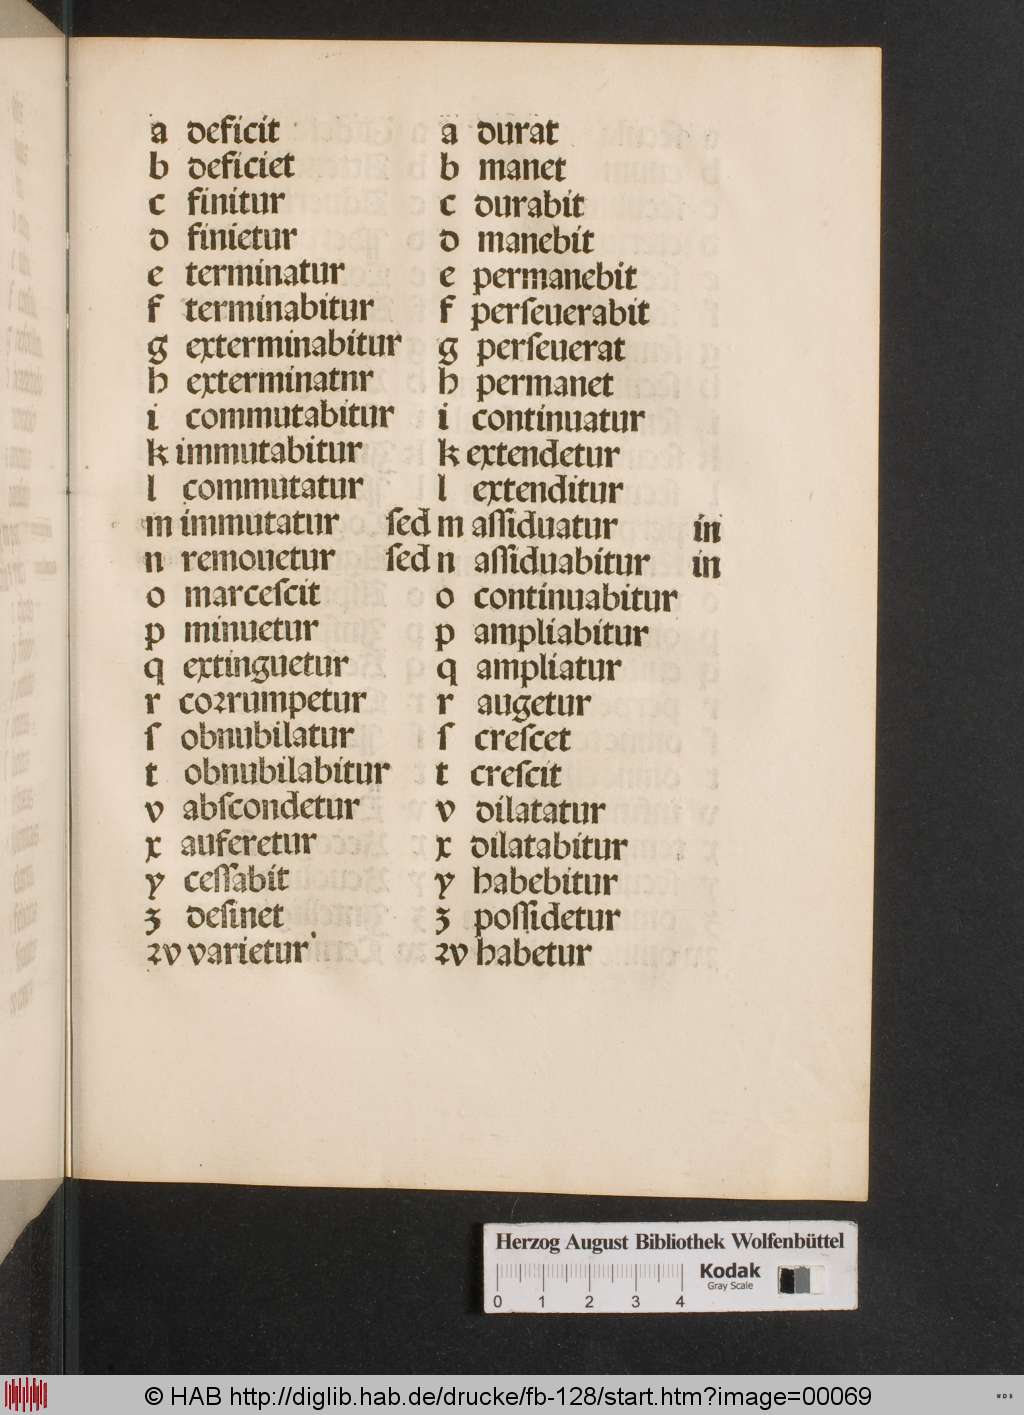 a deficit a durat
b deficiet b manet
c finitur c durabit
d finietur d manebit
e terminatur e permanebit
f terminabitur f perſeuerabit
g exterminabitur g perſeuerat
h exterminatnr h permanet
i commutabitur i continuatur
k immutabitur k extendetur
l commutatur l extenditur
m immutatur ſed m aſſiduatur in
n remouetur ſed n aſſiduabitur in
o marceſcit o continuabitur
p minuetur p ampliabitur
q extinguetur q ampliatur
r coꝛrumpetur r augetur
ſ obnubilatur ſ creſcet
t obnubilabitur t creſcit
v abſcondetur v dilatatur
x auferetur x dilatabitur
y ceſſabit y habebitur
ʒ deſinet ʒ poſſidetur
ꝛv varietur ꝛv habetur
Herzog August Bibliothek Wolfenbüttel
Kodak
Gray Scale
0 1 2 3 4
© HAB http://diglib.hab.de/drucke/fb-128/start.htm?image=00069